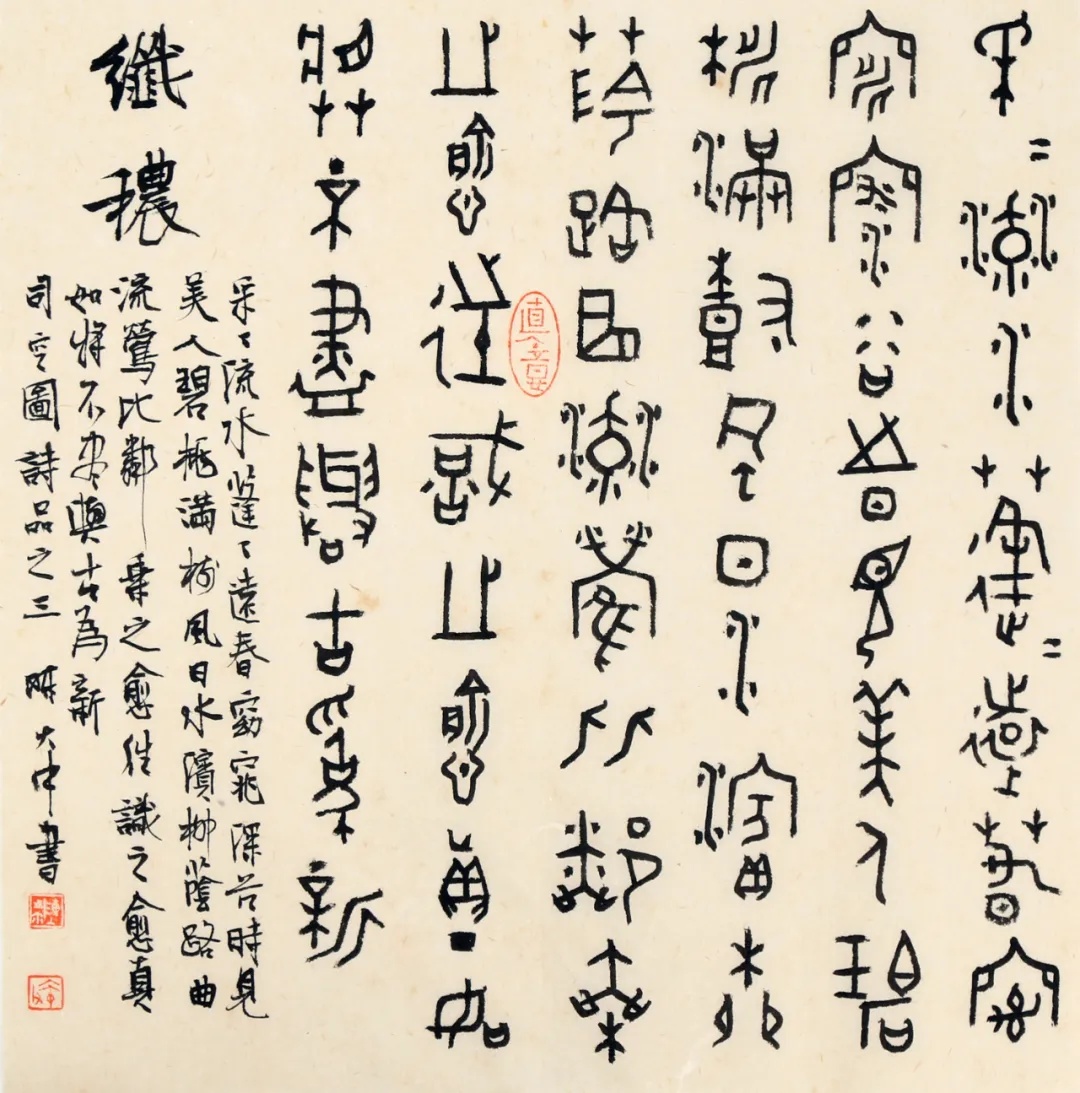 采〻流水蓬〻遠春窈
窕深谷時見美人碧
桃滿樹風日水濱柳
蔭路曲流鶯比鄰乘
之愈往識之愈真如
將不盡與古為新
纖穠
采〻流水蓬〻遠春窈窕深谷時見
美人碧桃滿樹風日水濱柳蔭路曲
流鶯比鄰乘之愈往識之愈真
如將不盡與古為新
司空圖詩品之三 陳大中書